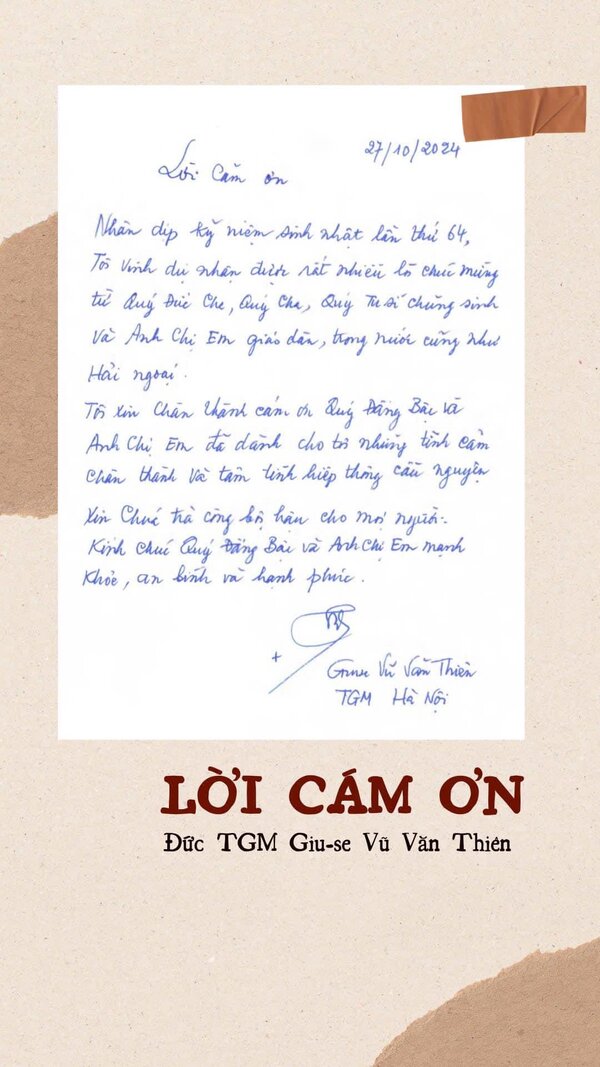 27/10/2024
Lời cám ơn
Nhân dịp kỷ niệm sinh nhật lần thứ 64,
Tôi vinh dự nhận được rất nhiều lời chúc mừng
từ Quý Đức Cha, Quý Cha, Quý Tu sĩ chủng sinh
và Anh Chị Em giáo dân, trong nước cũng như
Hải ngoại.
Tôi xin chân thành cám ơn Quý Đấng Bậc và
Anh Chị Em đã dành cho tôi những tình cảm
chân thành và tâm tình hiệp thông cầu nguyện
Xin Chúa trả công bội hậu cho mọi người.
Kính chúc Quý Đấng Bậc và Anh Chị Em mạnh
khỏe, an bình và hạnh phúc.
+
Giuse Vũ Văn Thiên
TGM Hà Nội
LỜI CÁM ƠN
Đức TGM Giu-se Vũ Văn Thiên